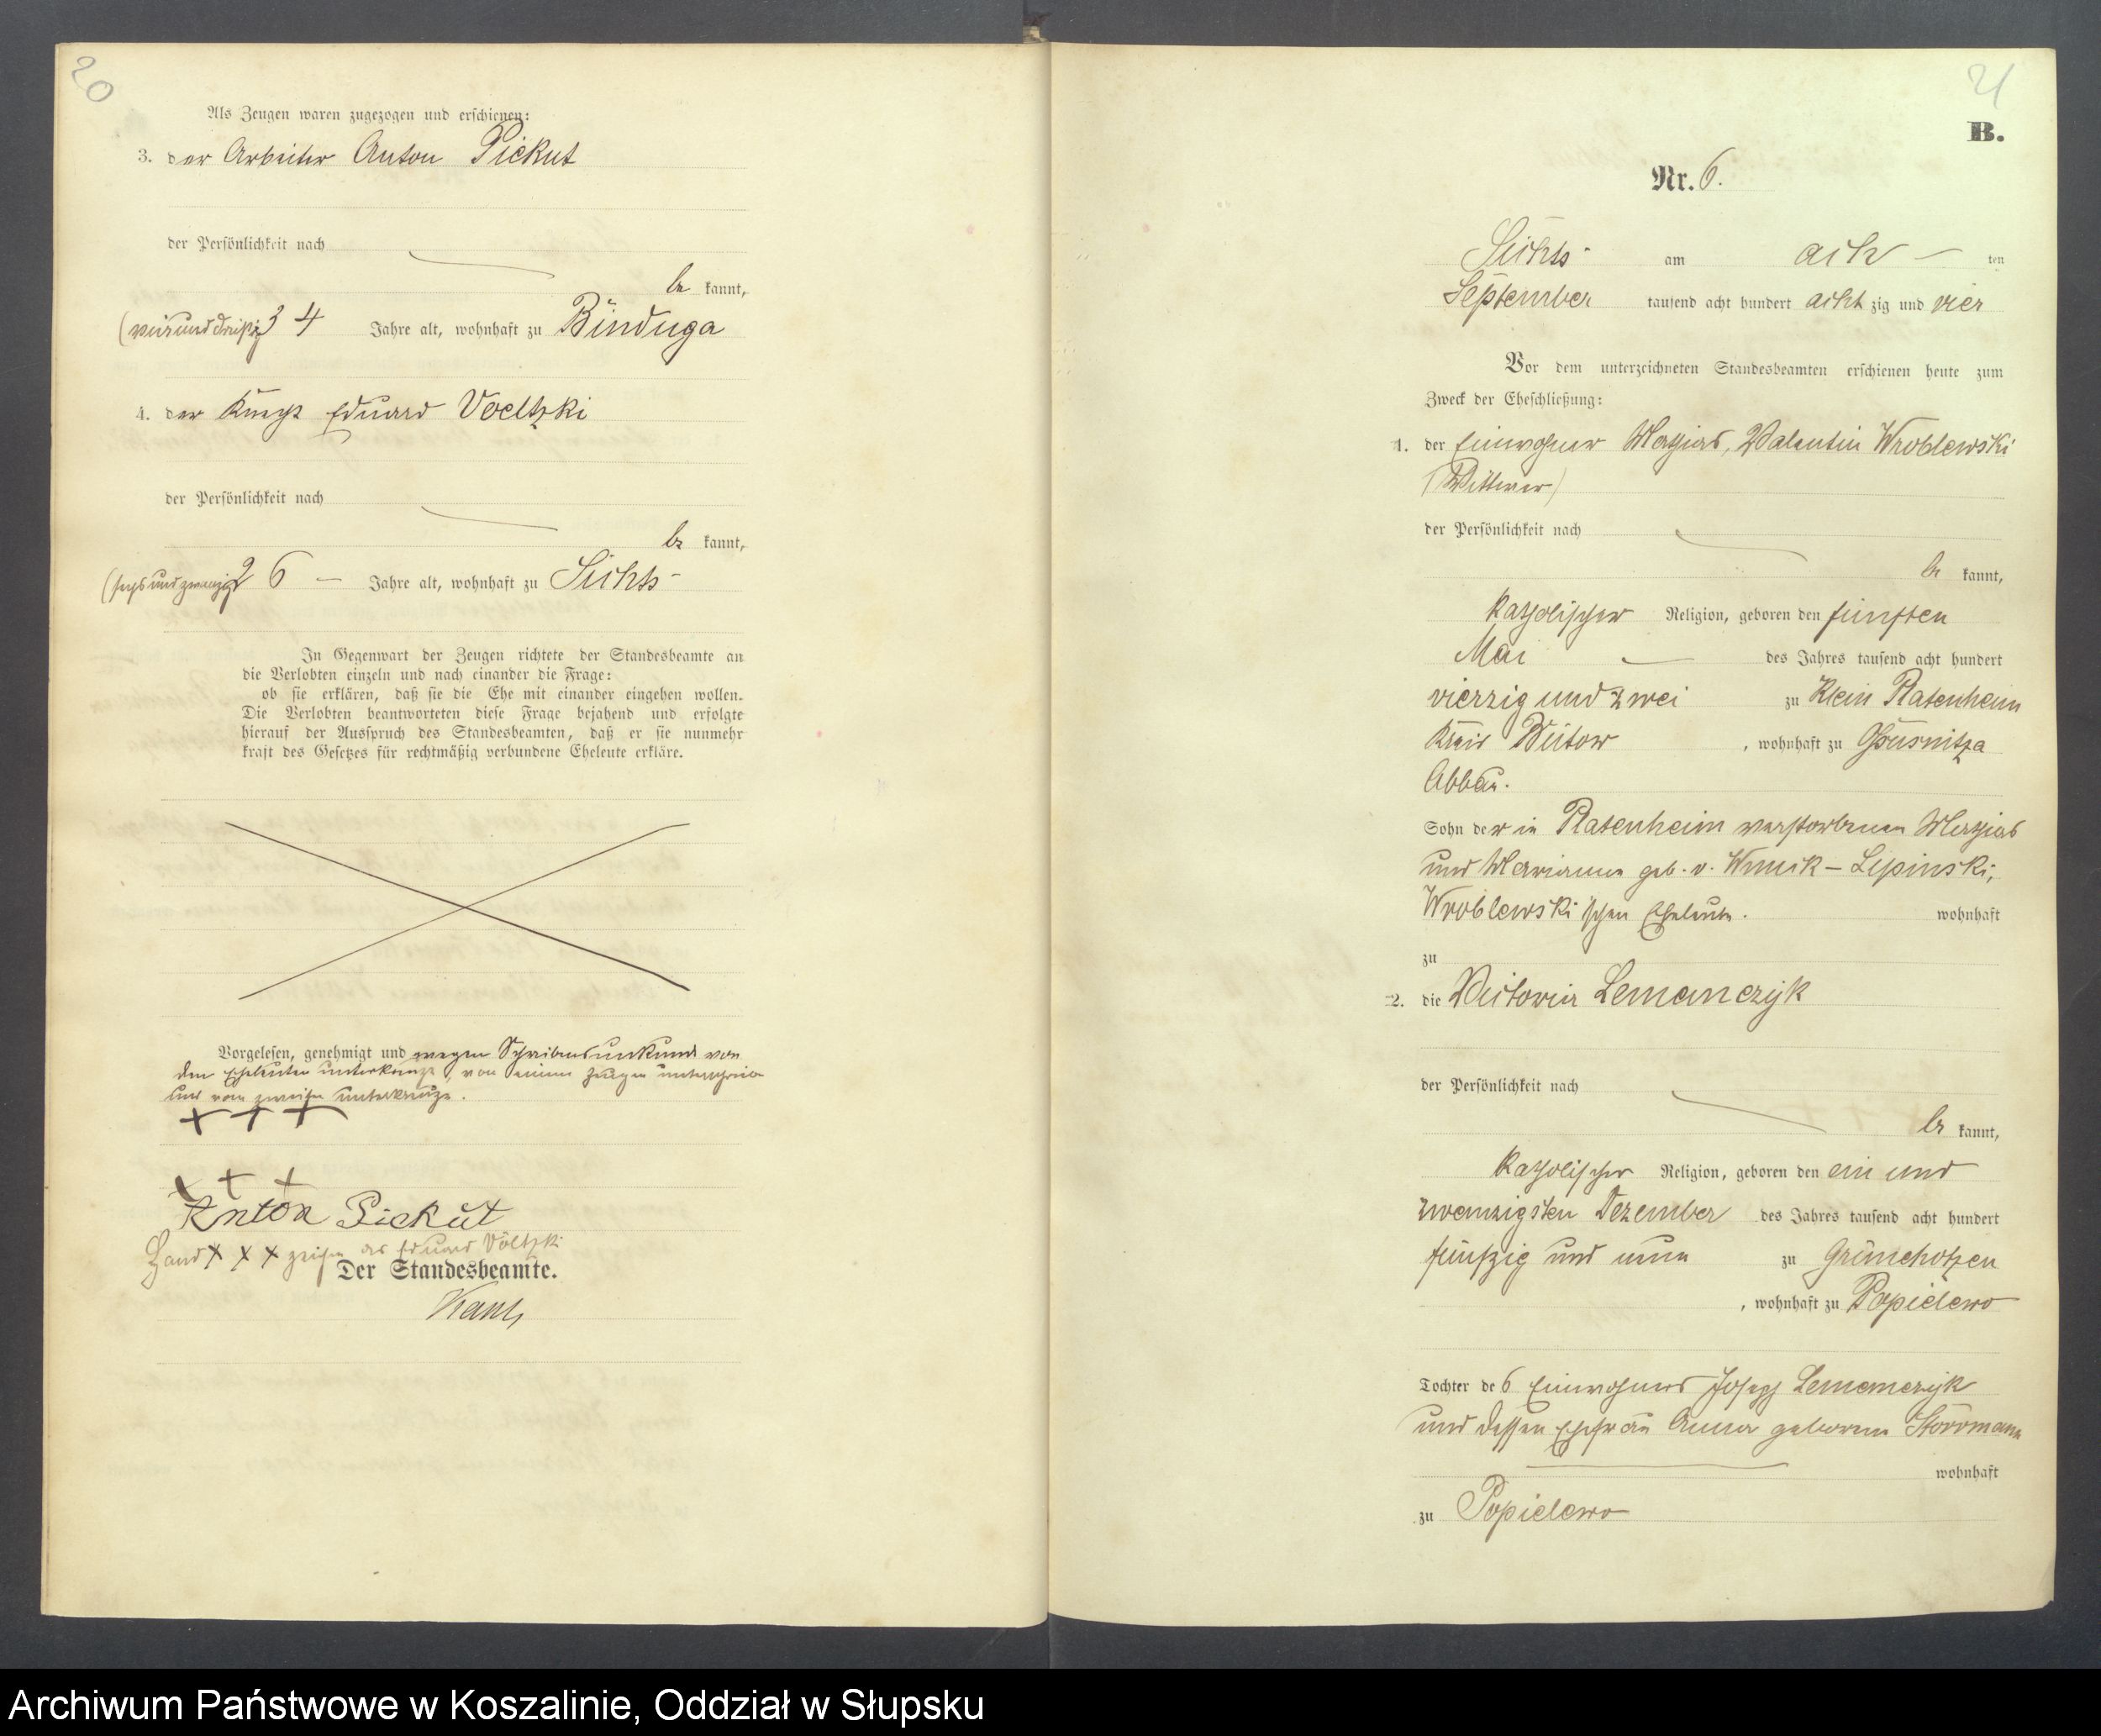 20
Als Zeugen waren zugezogen und erschienen:
3. der Arbeiter Anton Pickut
der Persönlichkeit nach
be kannt,
(vierunddreißig) 34 Jahre alt, wohnhaft zu Binduga
4. der Knecht Eduard Voeltzki
der Persönlichkeit nach
be kannt,
(sechsundzwanzig) 26 — Jahre alt, wohnhaft zu Sichts-
In Gegenwart der Zeugen richtete der Standesbeamte an
die Verlobten einzeln und nach einander die Frage:
ob sie erklären, daß sie die Ehe mit einander eingehen wollen.
Die Verlobten beantworteten diese Frage bejahend und erfolgte
hierauf der Ausspruch des Standesbeamten, daß er sie nunmehr
kraft des Gesetzes für rechtmäßig verbundene Eheleute erkläre.
Vorgelesen, genehmigt und wegen Schreibensunkunde von
den Eheleuten unterkreuzt, von einem Zeugen unterschrieben
und vom zweiten unterkreuzt.
+ + +
+ + +
Anton Pickut
Hand x x x zeichen des Eduard Völtzki
Der Standesbeamte.
21
B.
Nr. 6.
Sichts- am acht — ten
September tausend acht hundert acht zig und vier
Vor dem unterzeichneten Standesbeamten erschienen heute zum
Zweck der Eheschließung:
1. der Einwohner Mathias, Valentin Wroblewski
(Wittwer)
der Persönlichkeit nach
be kannt,
katholischer Religion, geboren den fünften
Mai — des Jahres tausend acht hundert
vierzig und zwei zu Klein Platenheim
Kreis Bütow, wohnhaft zu Ossusnitza
Abbau.
Sohn der in Platenheim verstorbenen Mathias
und Marianna geb. v. Wnuck-Lipinski,
Wroblewski'schen Eheleute. wohnhaft
zu
2. die Victoria Lemanczyk
der Persönlichkeit nach
be kannt,
katholischer Religion, geboren den ein und
zwanzigsten Dezember des Jahres tausend acht hundert
fünfzig und neun zu Grünchotzen
, wohnhaft zu Popielewo
Tochter des Einwohners Joseph Lemanczyk
und dessen Ehefrau Anna geborene Storrmann
wohnhaft
zu Popielewo
Archiwum Państwowe w Koszalinie, Oddział w Słupsku